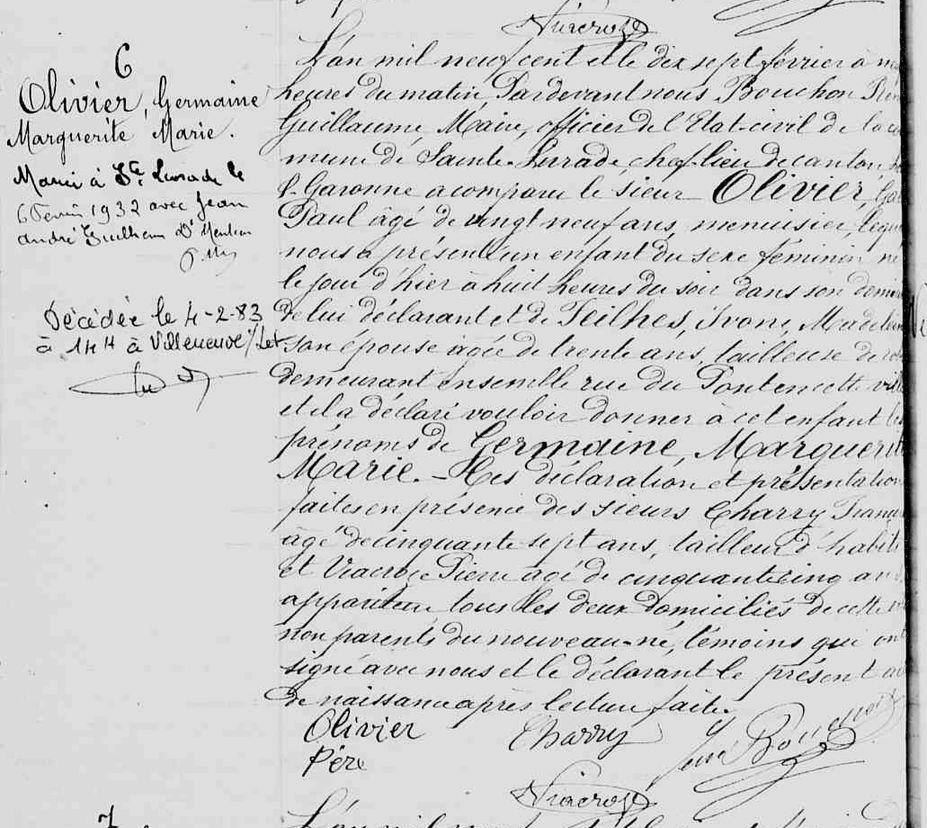 Viacroze
6
Olivier, Germaine
Marguerite, Marie.
Mariée à Ste Livrade le
6 Février 1932 avec Jean
André Guilhem
Décédée le 4-2-83
à 14H à Villeneuve/Lot
L'an mil neuf cent et le dix sept février à
heures du matin, Par devant nous Bouchon
Guillaume, Maire, officier de l'Etat-civil de la
mune de Sainte-Livrade, chef-lieu de canton
& Garonne a comparu le sieur Olivier,
Paul âgé de vingt neuf ans, menuisier, lequel
nous a présenté un enfant du sexe féminin né
le jour d'hier à huit heures du soir dans son
de lui déclarant et de Teilhes, Ivone, Madeleine
son épouse âgée de trente ans, tailleuse de
demeurant ensemble rue du Pont en cette
et il a déclaré vouloir donner à cet enfant les
prénoms de Germaine, Marguerite
Marie. - Les déclaration et présentation
faites en présence des sieurs Charry
âgé de cinquante sept ans, tailleur d'habits
et Viacroze Pierre âgé de cinquante cinq ans
appariteur tous les deux domiciliés de cette
non parents du nouveau-né, témoins qui ont
signé avec nous et le déclarant le présent
de naissance après lecture faite.
Olivier Charry Bouchon
Père
Viacroze
7 L'an mil